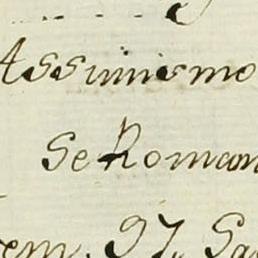 Assuinismo
Se Roman
em. 97. Sa